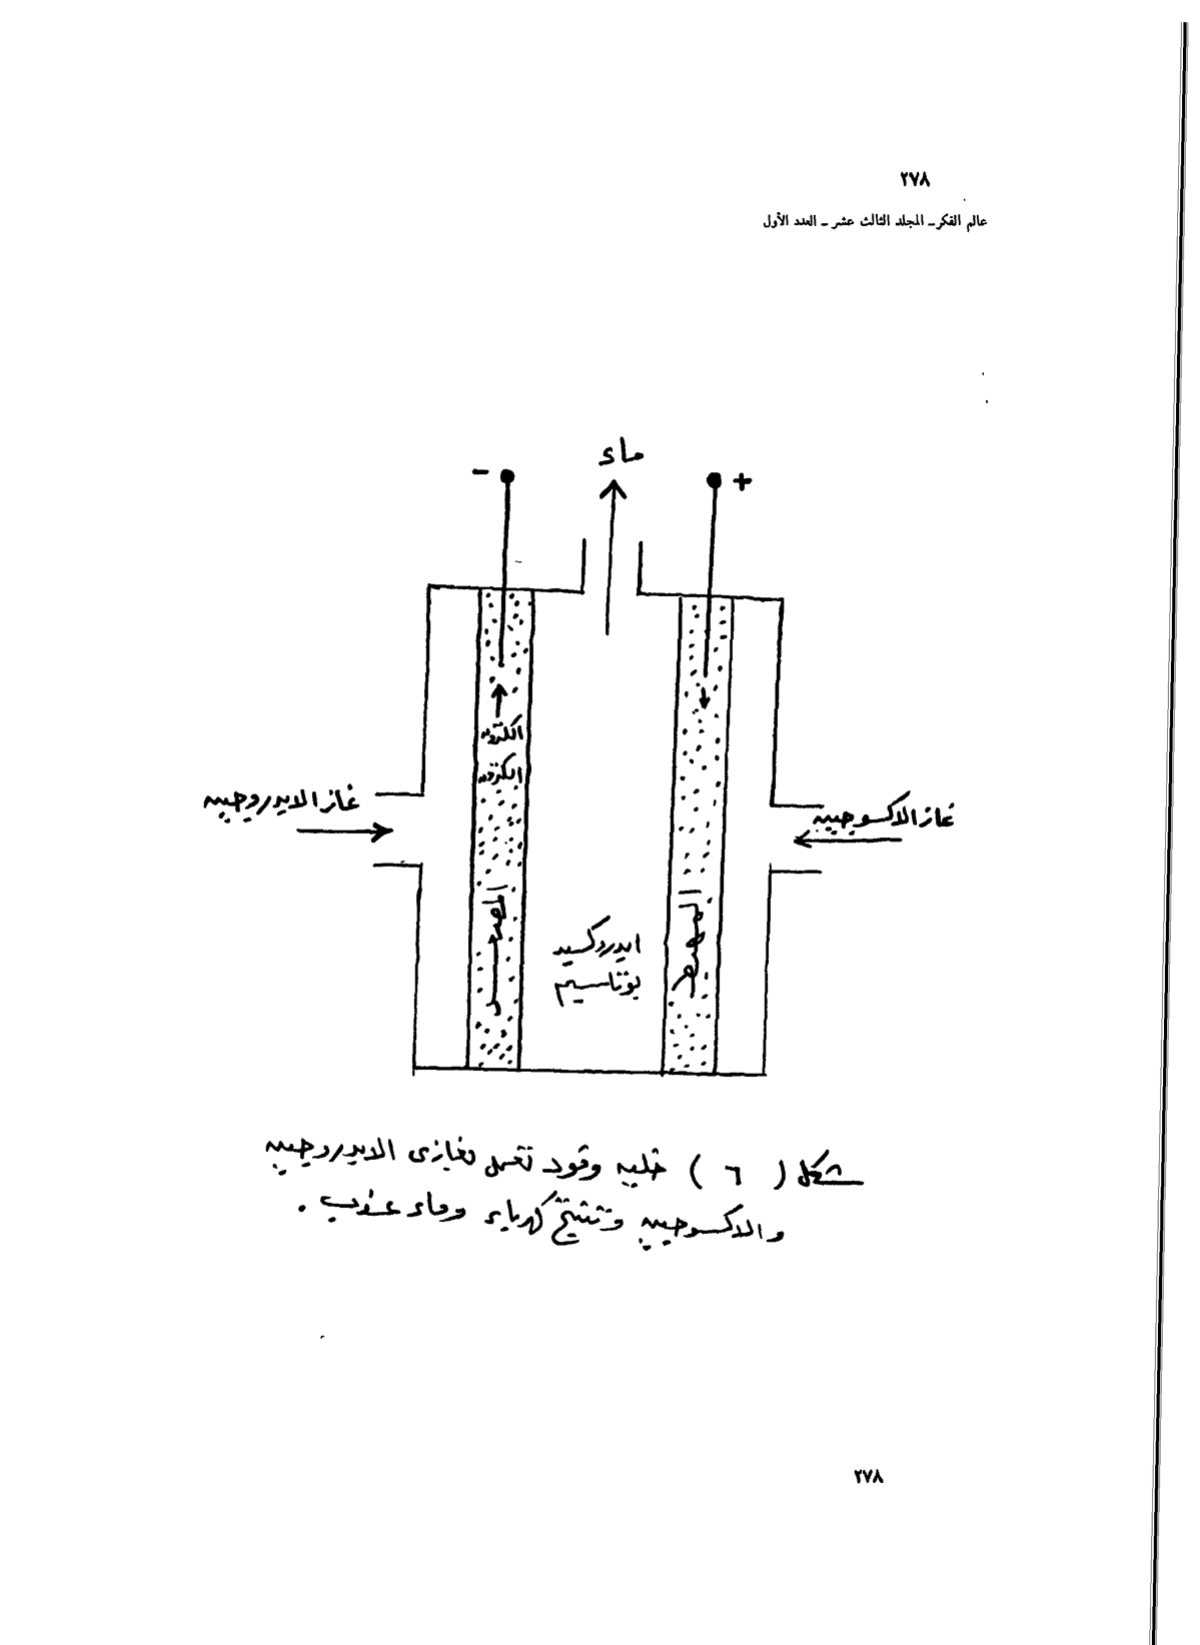 ٢٧٨
عالم الفكر ـ المجلد الثالث عشر ـ العدد الأول
ماء
- +
الكترون
الكترون
غاز الايدروجين
غاز الاكسوجين
المصعد
المهبط
ايدروكسيد
بوتاسيم
شكل ( ٦ ) خليه وقود تعمل بغازى الايدروجين
والاكسوجين وتنتج كهرباء وماء عذب .
٢٧٨